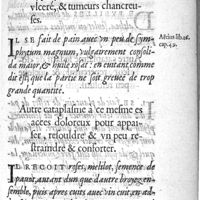 vlceré, & tumeurs chancreu-
ses.
Aëtius lib.16.
cap.42.
IL SE fait de pain auec vn peu de sym-
phytum magnum, vulgairement consoli-
da maior, & huile rosat: en eutant comme
dit est, que la partie ne soit greuée de trop
grande quantité.
Autre cataplasme à ce mesme et
actes doloreux pour appai-
ser, resouldre & vn peu re-
straindre & conforter.
IL REÇOIT roses, melilot, semence de
pauot, autant d'un que d'autre broyez en-
semble, puis apres cuits auec vin cuit, en ad-